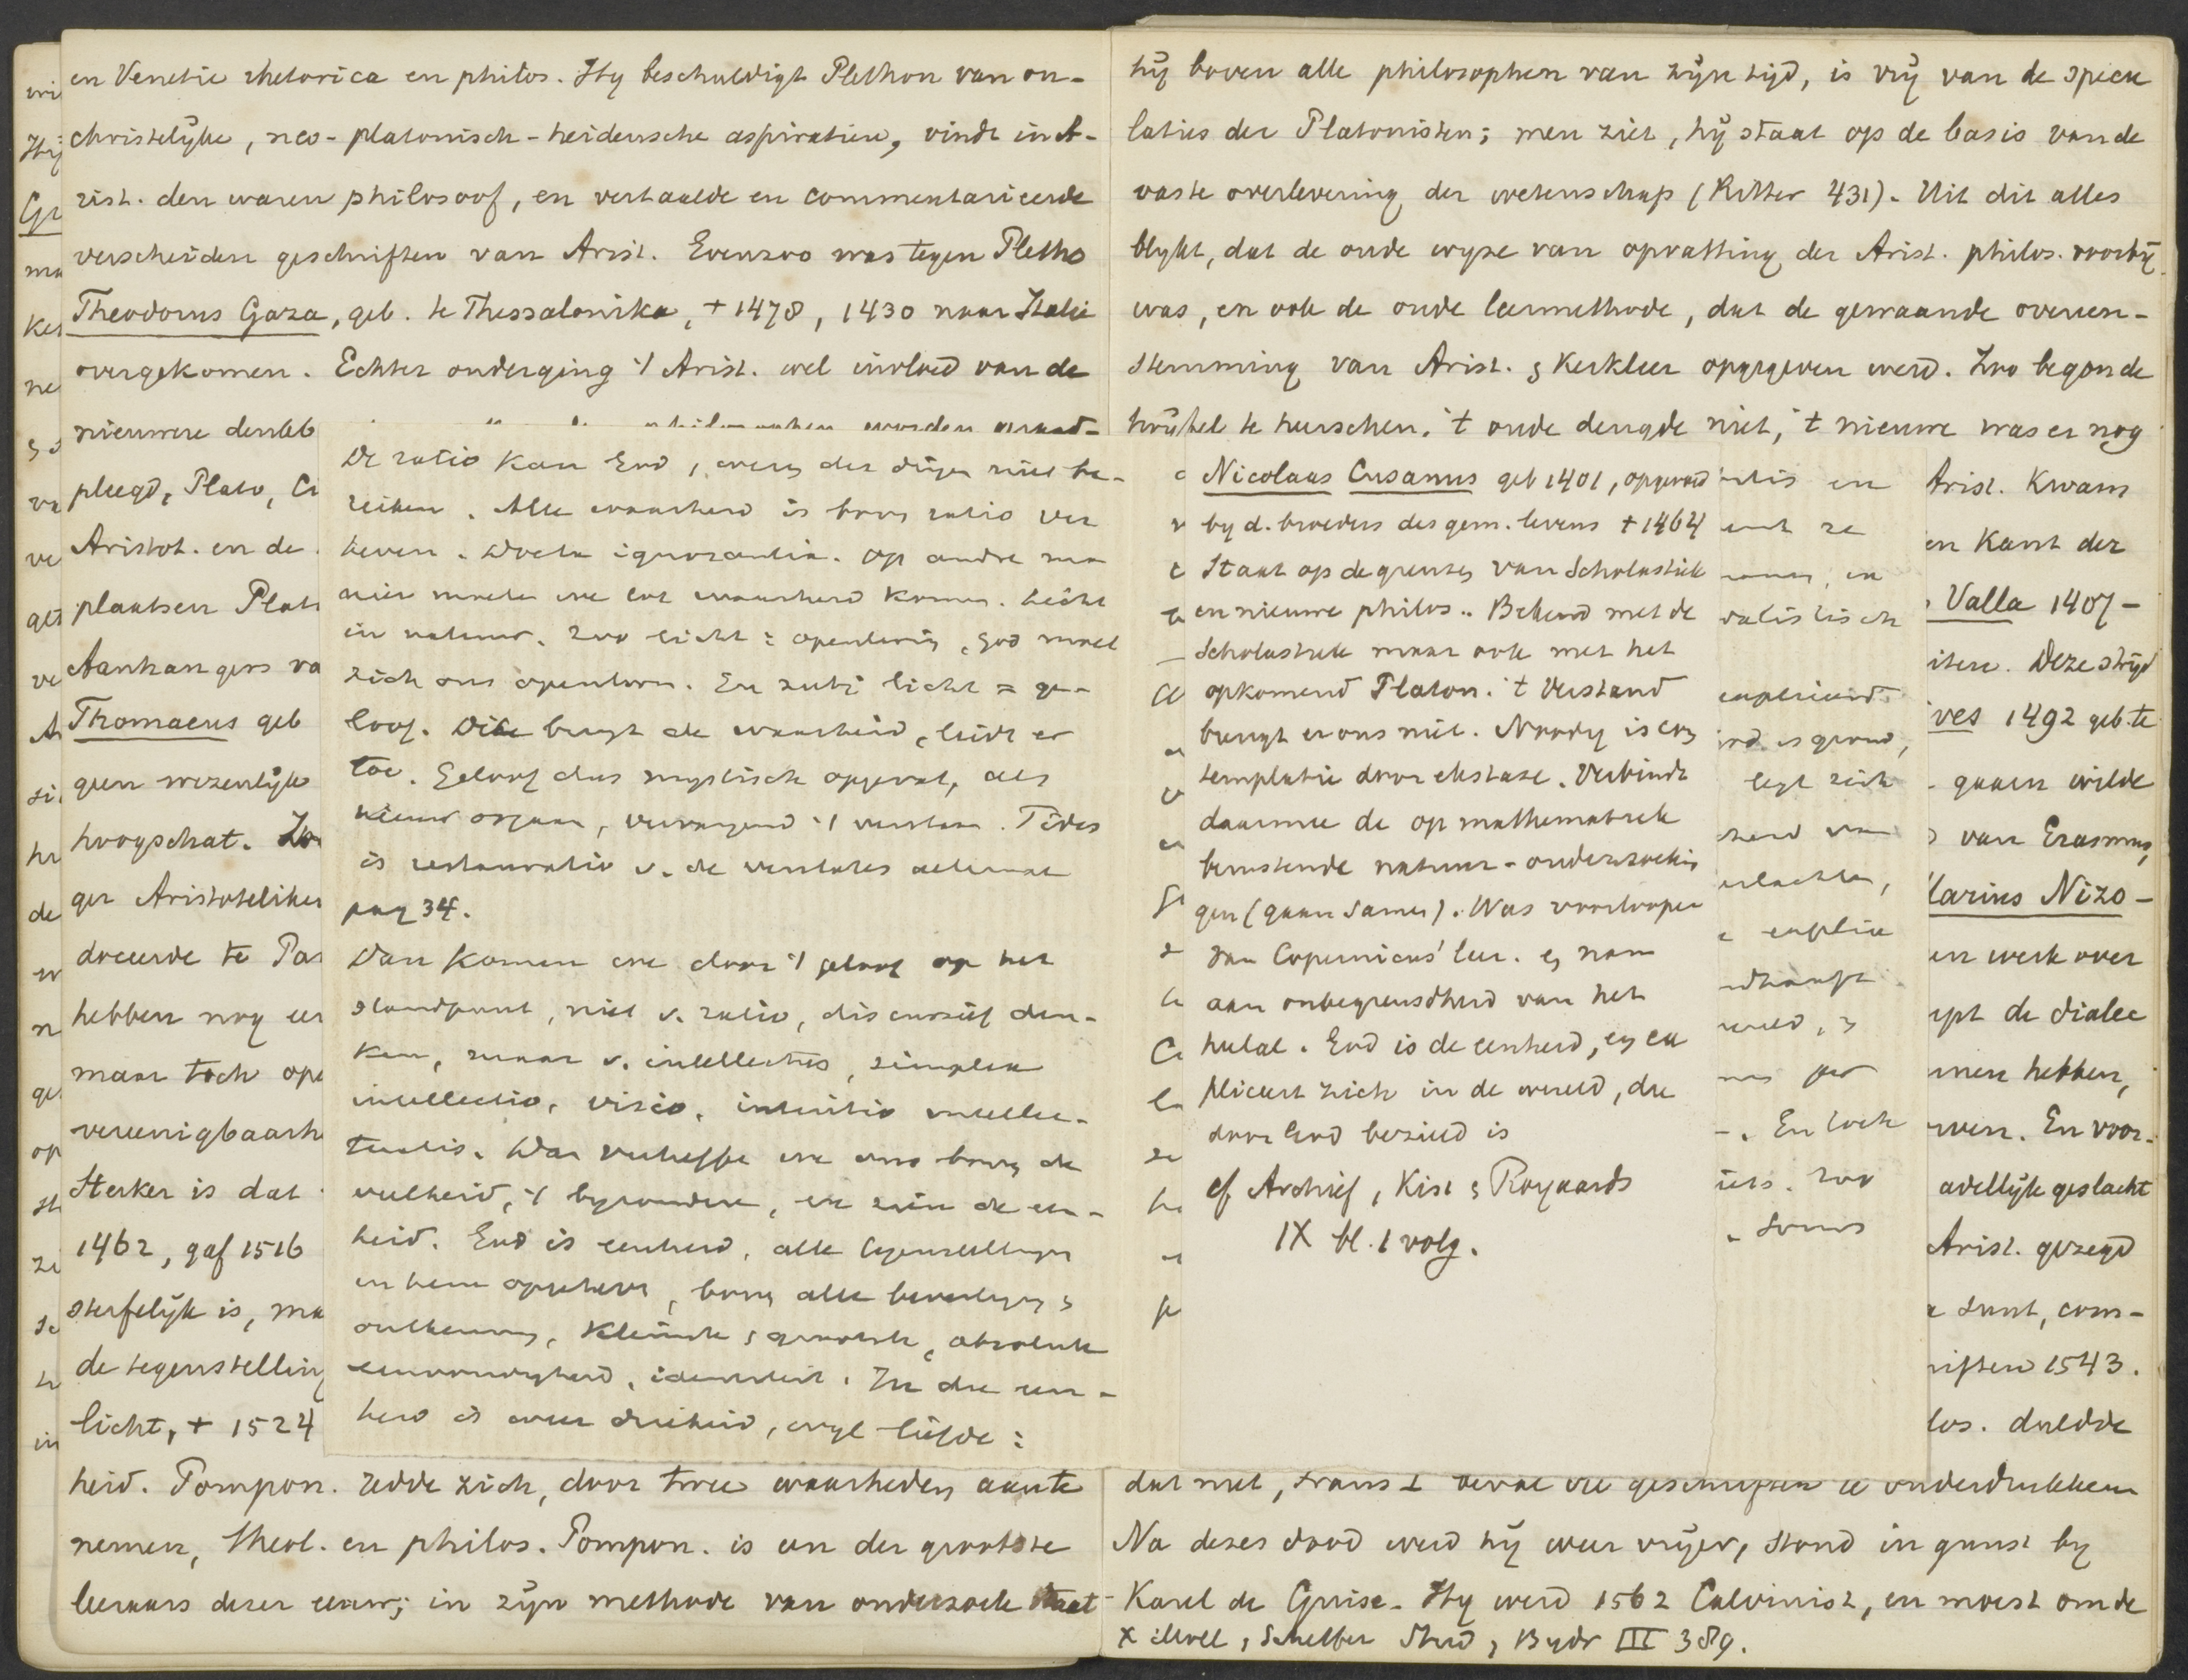 en Venetie rhetorica en philos. Hy beschuldigt Plethon van on-
christelyke, neo-platonisch-heidensche aspiratien, vindt in A-
rist. den waren philosoof, en vertaalde en commentarieerde
verscheiden geschriften van Arist. Evenzoo was tegen Pletho
Theodorus Gaza, geb. te Thessalonika, + 1478, 1430 naar Italie
overgekomen. Echter onderging 't Arist. wel invloed van de
nieuwere denkb
pleegd, Plato, Ci
Aristot. en de
plaatsen Plat
Aanhangers va
Thomaeus geb
geen wezenlijk
hoogschat. Zo
ger Aristotelike
doceerde te Pa
hebben nog ee
maar toch op
vereenigbaarh
Sterker is dat
1462, gaf 1516
sterfelijk is, ma
de tegenstelling
licht, + 1524
heid. Pompon. redde zich, door twee waarheden aan te
nemen, theol. en philos. Pompon. is een der grootste
leeraars dezer eeuw; in zijn methode van onderzoek staat
De ratio kan God, wezen der dingen niet be-
reiken. Alle waarheid is boven ratio ver
heven. Docta ignorantia. Op andre ma
nier moeten we tot waarheid komen. Licht
in natuur. Zoo licht = openbaring, God moet
zich ons openbaren. En zulk licht = ge-
loof. Dit brengt de waarheid, leidt er
toe. Geloof dus mystisch opgevat, als
nieuw orgaan, vervangend 't verstan. Fides
is restauratio v. de veritates aeternae
pag 34.
Dan komen we door 't geloof op het
standpunt, niet v. ratio, discursief den-
ken, maar v. intellectus, simplex
intellectio, visio, intuitio intellec-
tualis. Dan verheffe we ons boven de
veelheid, 't byzondere, en zien de een-
heid. God is eenheid, alle tegenstellingen
in hem opgeheven, boven alle bevestiging &
ontkenning, kleinste & grootste, absolute
eenvoudigheid, identiteit. In die een-
heid is weer drieheid, wyl liefde:
hij boven alle philosophen van zijn tijd, is vrij van de specu
laties der Platonisten; men ziet, hij staat op de basis van de
vaste overlevering der wetenschap (Ritter 431). Uit dit alles
blykt, dat de oude wyze van opvatting der Arist. philos. voorbij
was, en ook de oude leermethode, dat de gewaande overeen-
stemming van Arist. & kerkleer opgegeven werd. Zoo begon de
twijfel te heerschen. 't oude deugde niet, 't nieuwe was er nog
Nicolaas Cusanus geb 1401, opgevoed
by d. broeders des gem. levens + 1464
Staat op de grenzen van Scholastiek
en nieuwe philos.. Bekend met de
Scholastiek maar ook met het
opkomend Platon. 't Verstand
brengt er ons niet. Noodig is con
templatie door ekstase. Verbindt
daarmee de op mathematiek
berustende natuur-onderzoekin
gen (gaan samen). Was voorlooper
van Copernicus' leer. en nam
aan onbegrensdheid van het
heelal. God is de eenheid, en ex
pliceert zich in de wereld, die
door God bezield is
cf Archief, Kist & Royaards
IX bl. 1 volg.
Arist. kwam
en kant der
Valla 1407-
iten. Deze strijd
ves 1492 geb. te
gaan wilde
van Erasmus,
Marius Nizo-
en werk over
ept de dialec
nnen hebben,
rven. En voor-
adellijk geslacht
Arist. gezegd
sunt, com-
riften 1543.
los. duldde
dat niet, Frans I beval die geschriften te onderdrukken
Na dezes dood werd hij weer vrijer, stond in gunst by
Karel de Guise. Hy werd 1562 Calvinist, en moest om de
x Moll, Scheffer Stud, Bydr III 389.